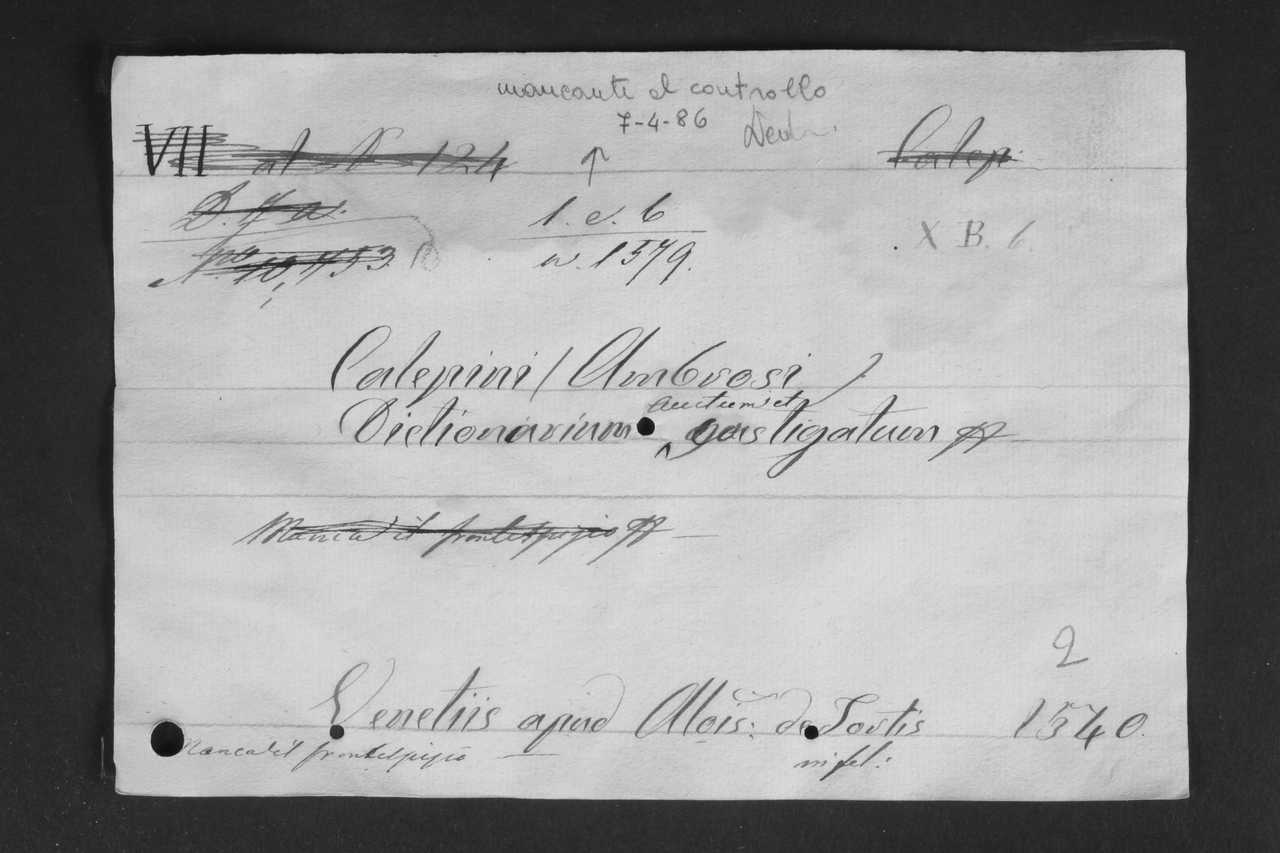 mancante al controllo
7-4-86
VII al N 124
Calep
1. e. 6
X B. 6.
No 10,453
n. 1579.
Calepini (Ambrosi)
auctum et
Dictionarium castigatum
Manca il frontespizio
2
Venetiis apud Alois: de Tortis 1540.
Manca il frontespizio
in fol: